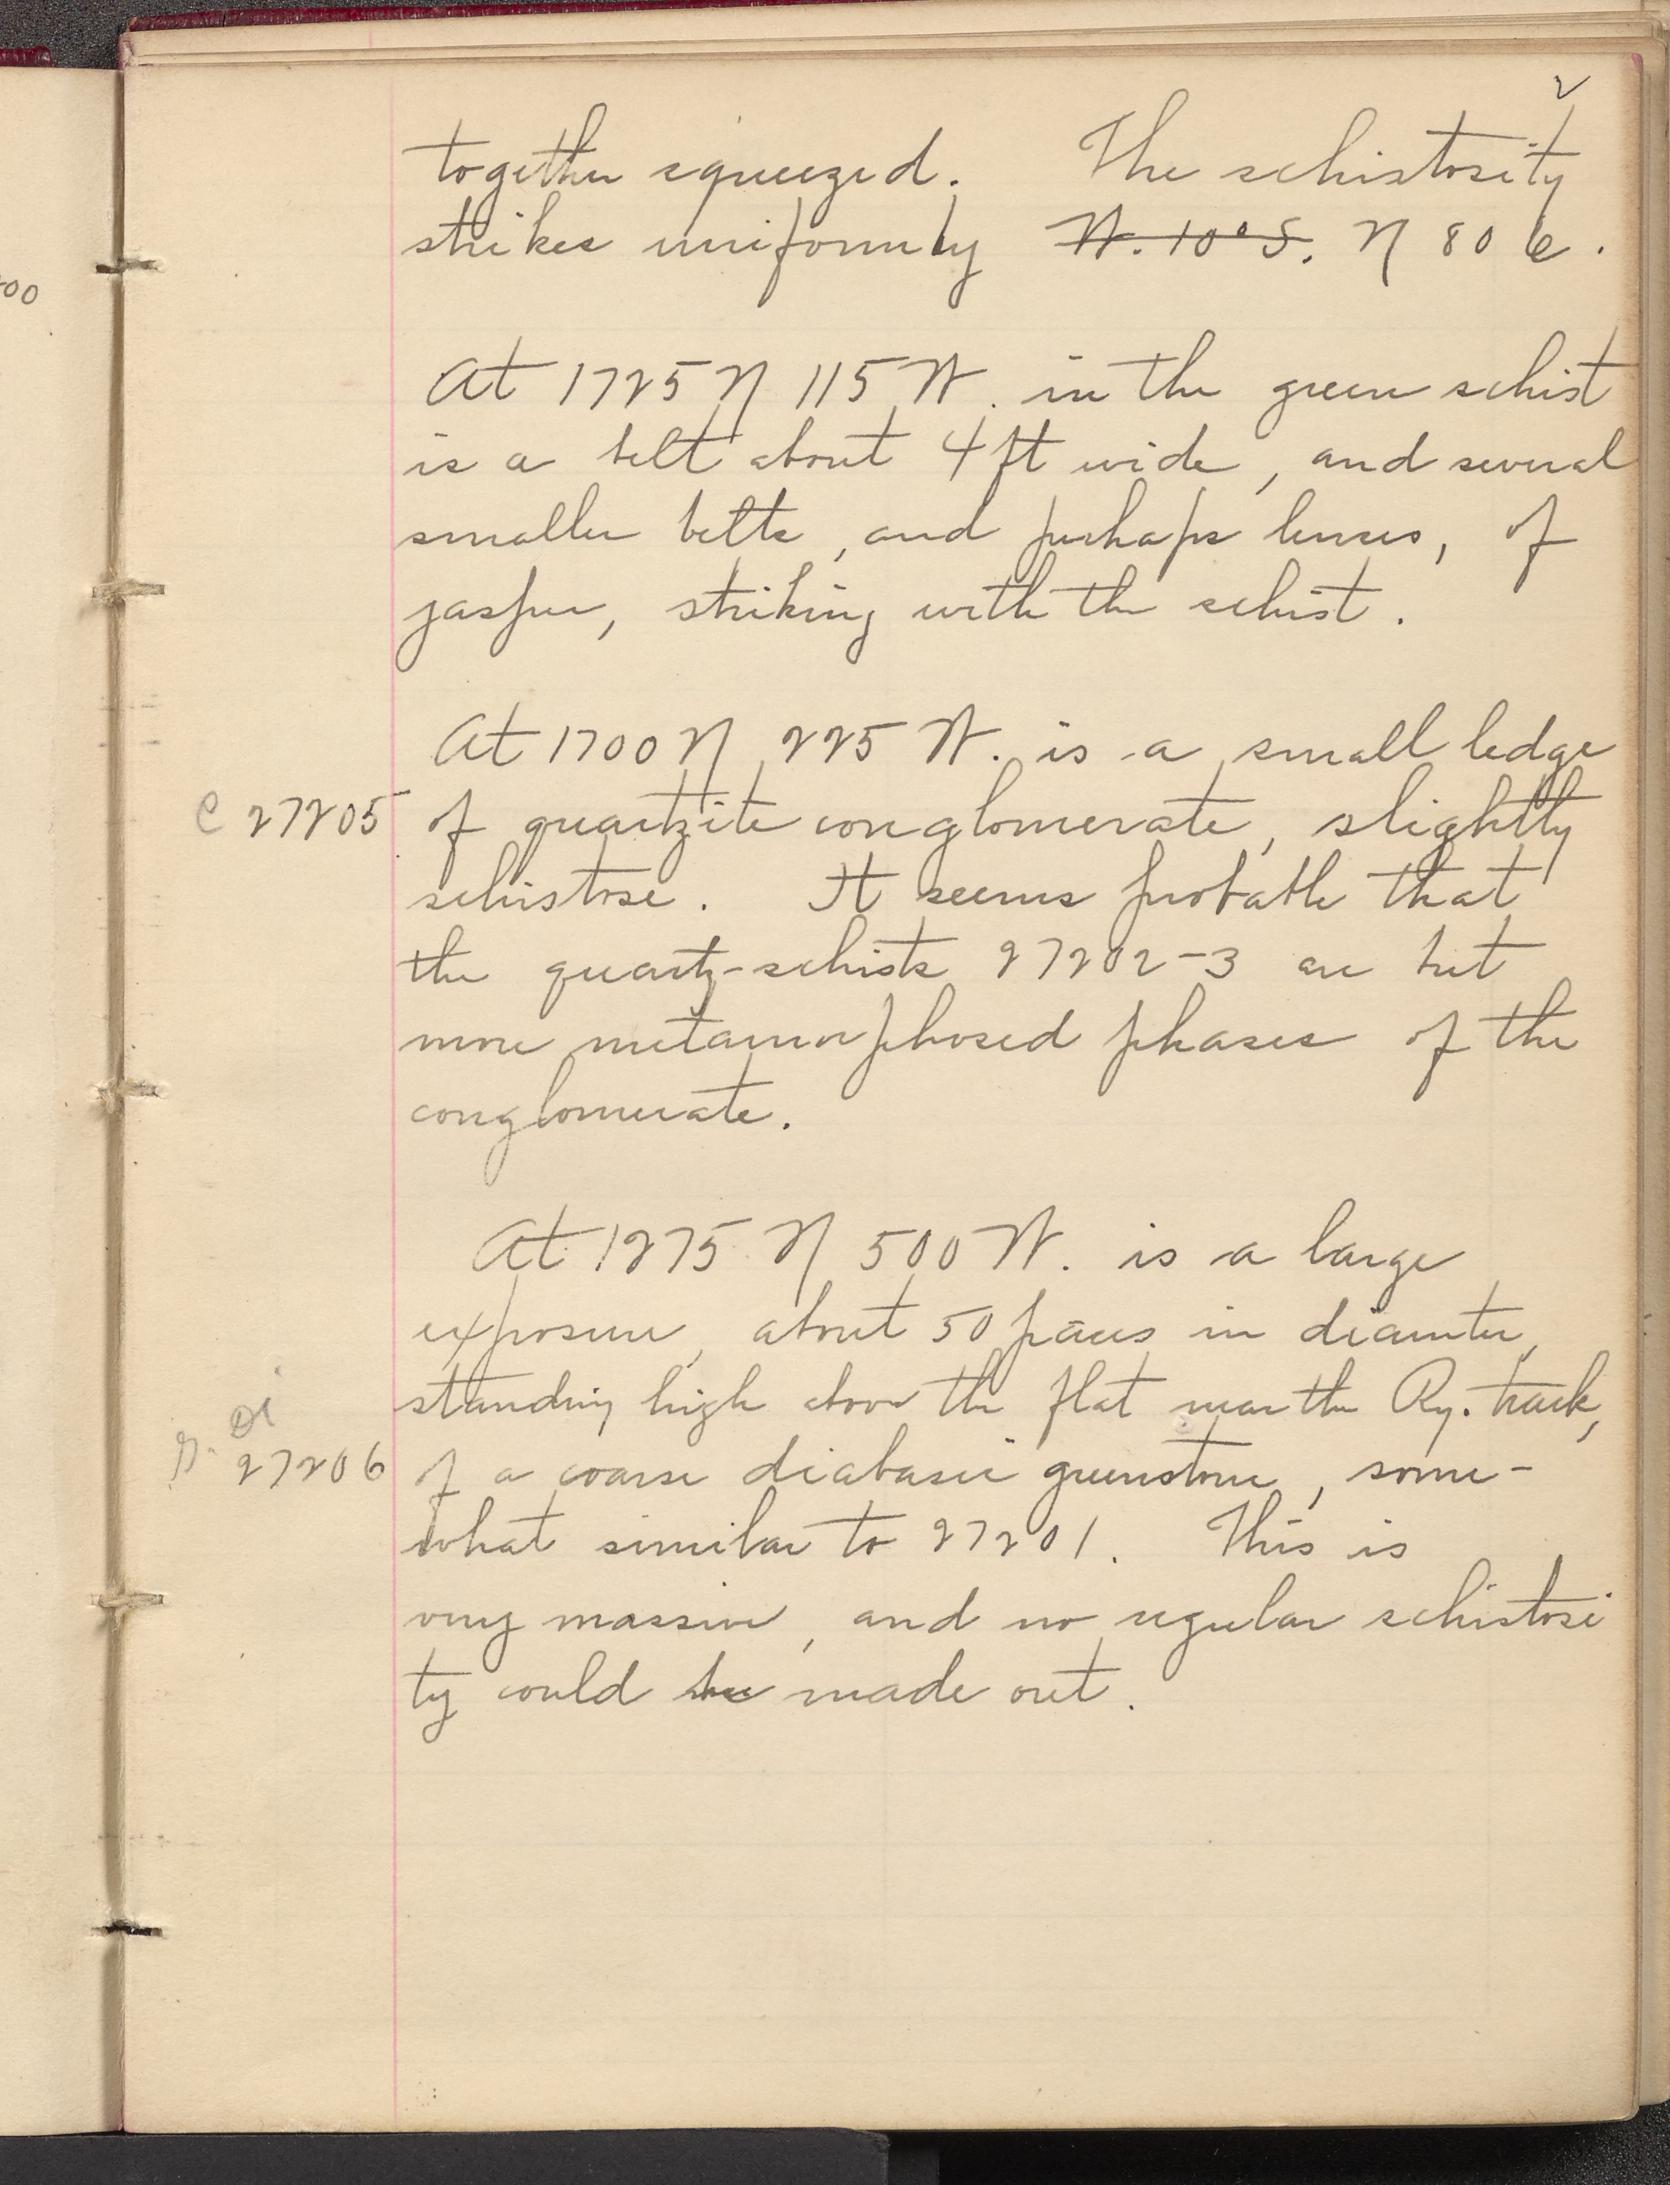 2
together squeezed. The schistosity
strikes uniformly W. 10° S. N 80 E.
At 1725 N 115 W. in the green schist
is a belt about 4 ft wide, and several
smaller belts, and perhaps lenses, of
jasper, striking with the schist.
At 1700 N 225 W. is a small ledge
C 27205 of quartzite conglomerate, slightly
schistose. It seems probable that
the quartz-schists 27202-3 are but
more metamorphosed phases of the
conglomerate.
At 1275 N 500 W. is a large
exposure, about 50 paces in diameter,
standing high above the flat near the Ry. track,
27206 of a coarse diabasic greenstone, some-
what similar to 27201. This is
very massive, and no regular schistosi
ty could be made out.